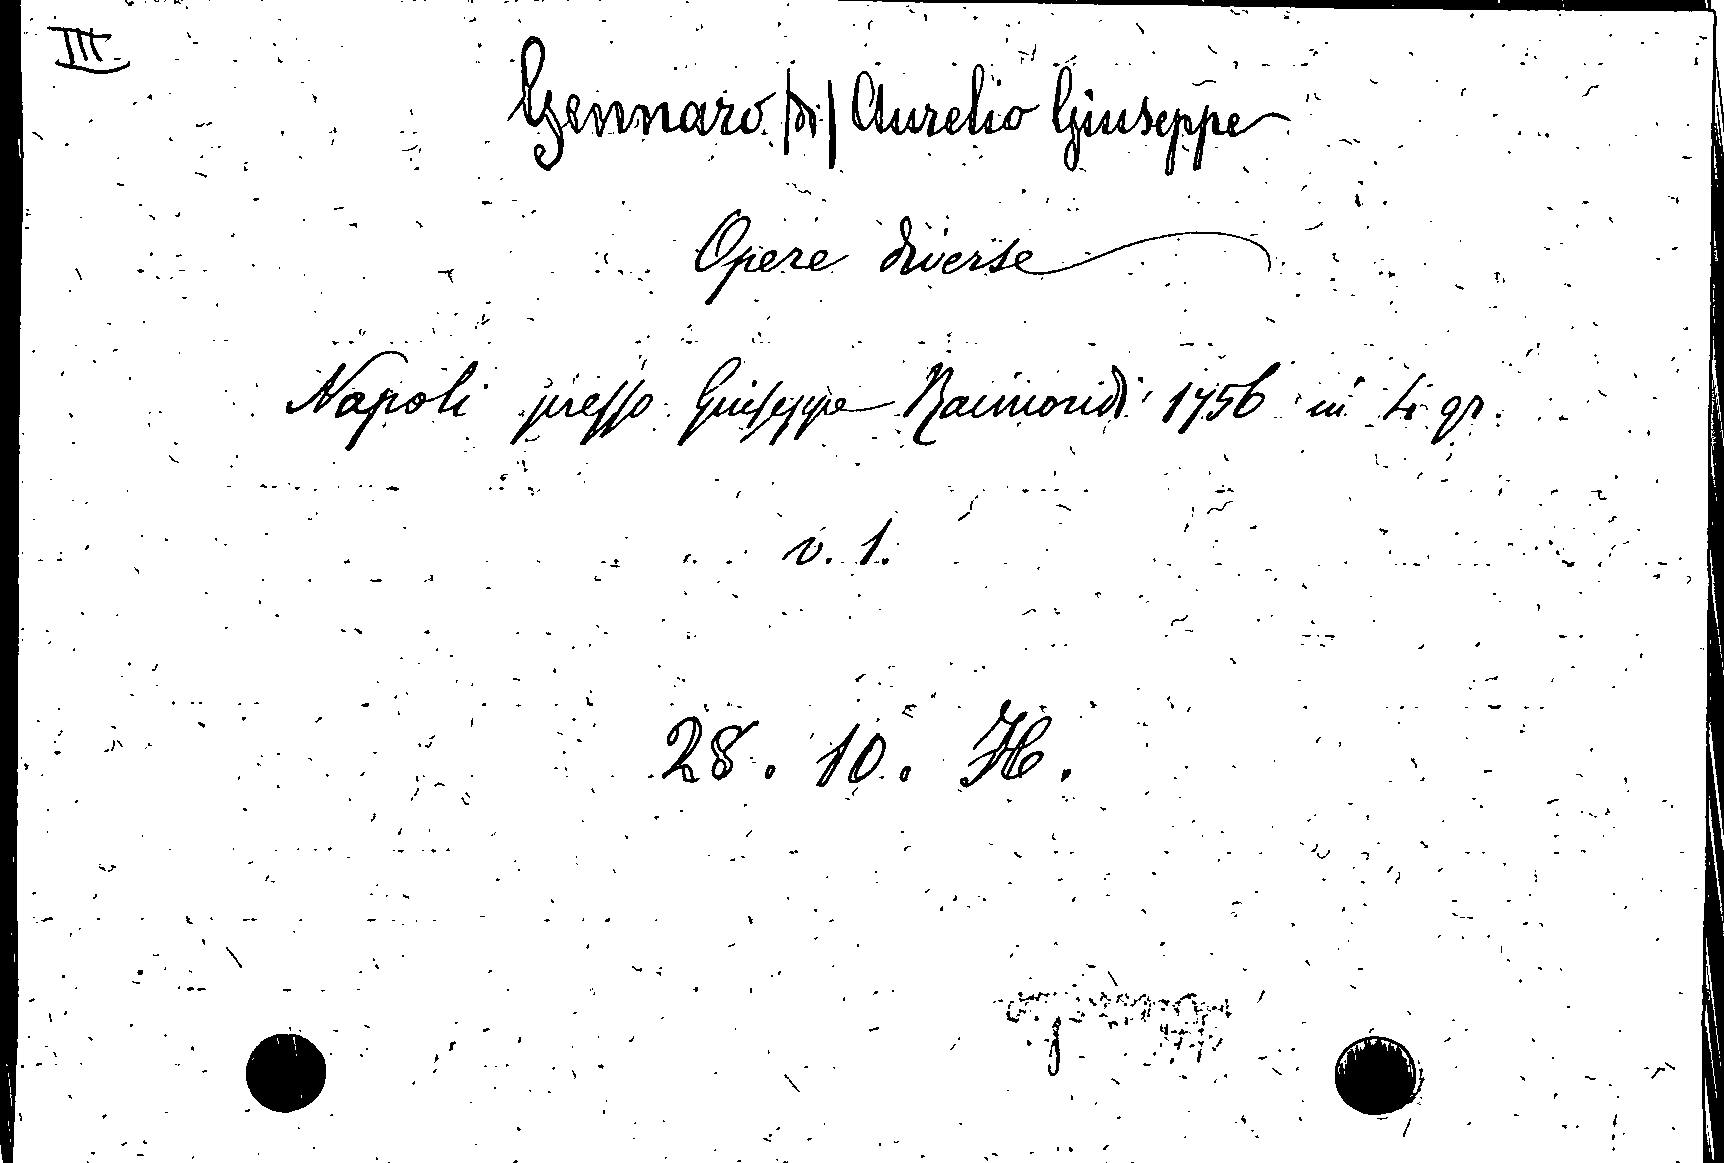 III.
Gennaro |di| Aurelio Giuseppe
Opere diverse
Napoli presso Giuseppe Raimondi 1756 in 4º gr.
v. 1.
28. 10. H.